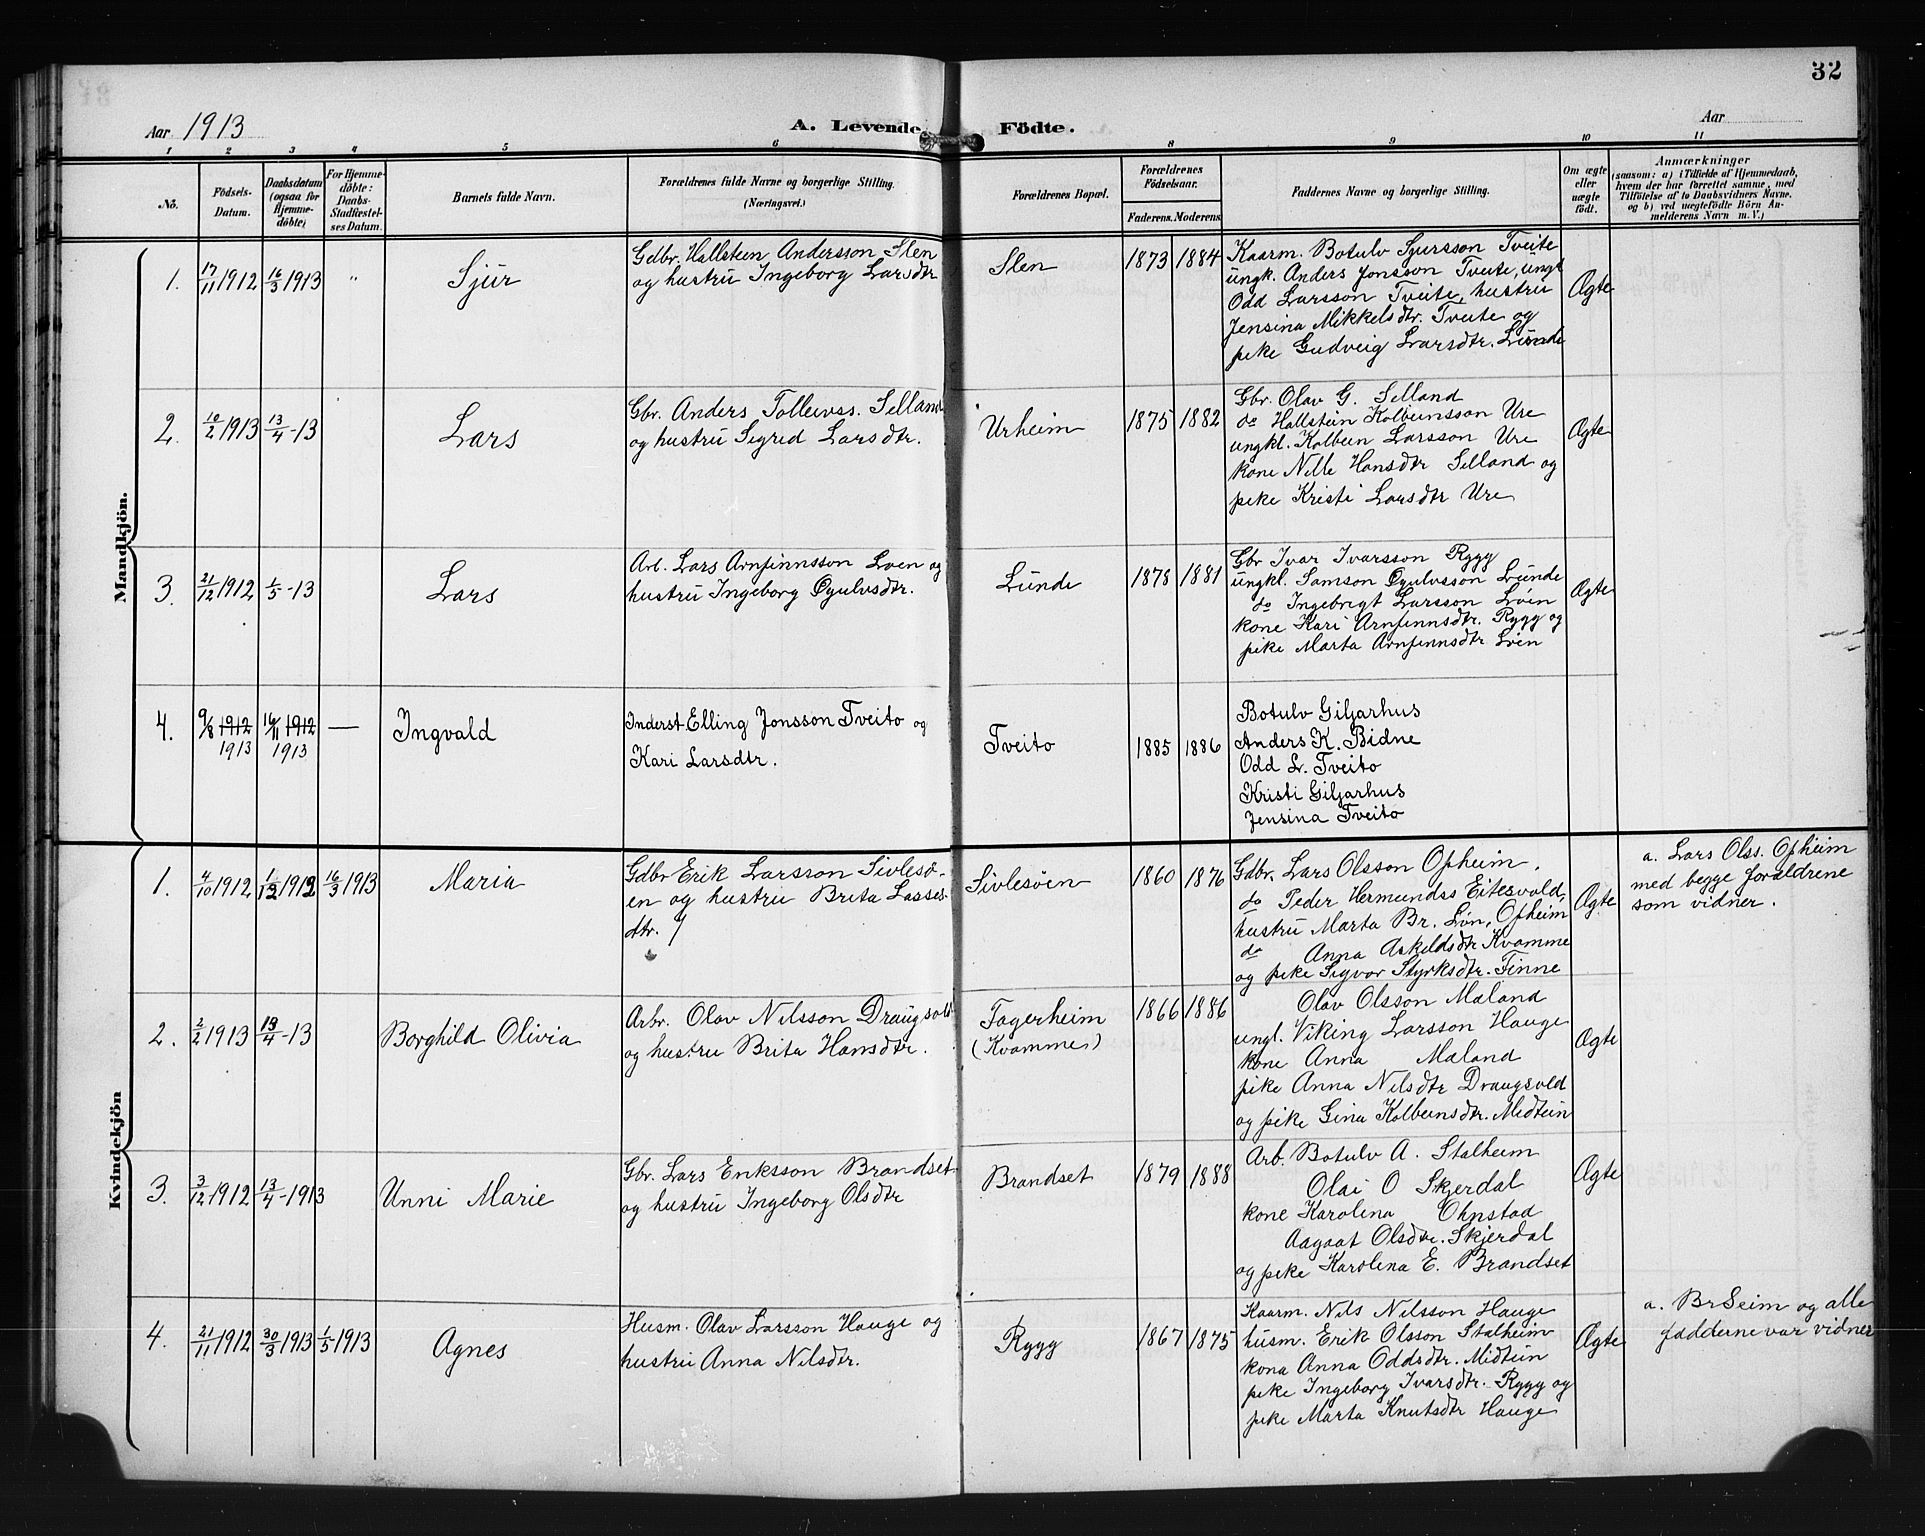 32
Aar 1913
A. Levende Födte.
Aar
1 2 3 4 5 6 8 9 10 11
No.
Födsels-Datum.
Daabsdatum (ogsaa for Hjemmedöbte)
For Hjemmedöbte: Daabs-Stadfæstelses Datum.
Barnets fulde Navn.
Forældrenes fulde Navne og borgerlige Stilling.
(Næringsvei.)
Forældrenes Bopæl.
Forældrenes Födselsaar.
Faderens. Moderens.
Faddernes Navne og borgerlige Stilling.
Om ægte eller uægte födt.
Anmærkninger
(saasom: a) i Tilfælde af Hjemmedaab,
hvem der har forrettet samme, med
Tilföielse af to Daabsvidners Navne.
og b) ved uægtefödte Börn Anmelderens Navn m. V.)
Mandkjön.
1. 17/11 1912 16/3 1913 " Sjur
Gdbr. Hallstein Andersson Slen
og hustru Ingeborg Larsdtr
Slen 1873 1884
Kaarm. Botulv Sjursson Tveite
ungk. Anders Jonsson Tveite, ungk
Odd Larsson Tveite, hustru
Jensina Mikkelsdtr. Tveite og
pike Gudveig Larsdtr. Lunde
Ægte
2. 10/2 1913 13/4-13 Lars
Gbr. Anders Tolleivss. Selland
og hustru Sigrid Larsdtr.
Urheim 1875 1882
Gbr. Olav G. Selland
do Hallstein Kolbeinsson Ure
ungkl. Kolbein Larsson Ure
kone Nille Hansdtr Selland og
pike Kristi Larsdtr Ure
Ægte
3. 21/12 1912 1/5-13 Lars
Arb. Lars Arnfinnsson Løen og
hustru Ingeborg Øyulvsdtr.
Lunde 1878 1881
Gbr Ivar Ivarsson Rygg
ungkl. Samson Øyulvsson Lunde
do Ingebrigt Larsson Løen
kone Kari Arnfinnsdtr. Rygg og
pike Marta Arnfinnsdtr Løen
Ægte
4. 9/8 1912 16/11 1912 — Ingvald
1913 1913
Inderst Elling Jonsson Tveito og
Kari Larsdtr.
Tveito 1885 1886
Botulv Giljarhus
Anders K. Bidne
Odd L. Tveito
Kristi Giljarhus
Jensina Tveito
Kvindekjön
1. 4/10 1912 1/12 1912 16/3 1913 Maria
Gdbr Erik Larsson Sivlesø-
en og hustru Brita Lasses-
dtr.
Sivlesøen 1860 1876
Gdbr. Lars Olsson Opheim,
do Peder Hermundss Eitesvold,
hustru Marta Br. Løn, Opheim
do Anna Askeldsdtr Kvamme
og pike Sigvor Styrksdtr. Finne
Ægte
a. Lars Olss. Opheim
med begge forældrene
som vidner.
2. 2/2 1913 13/4-13 Borghild Olivia
Arbr. Olav Nilsson Draugsvold
og hustru Brita Hansdtr.
Fagerheim
(Kvamme)
1866 1886
Olav Olsson Mæland
ungl. Viking Larsson Hauge
kone Anna Mæland
pike Anna Nilsdtr Draugsvold
og pike Gina Kolbeinsdtr. Midtun
Ægte
3. 3/12 1912 13/4-1913 Unni Marie
Gbr. Lars Eriksson Brandset
og hustru Ingeborg Olsdtr
Brandset 1879 1888
Arb. Botulv A. Stalheim
Olai O Skjerdal
kone Karolina Opnstad
Aagaat Olsdtr. Skjerdal
og pike Karolina E. Brandset
Ægte
4. 21/11 1912 30/3 1913 1/5 1913 Agnes
Husm. Olav Larsson Hauge og
hustru Anna Nilsdtr.
Rygg 1867 1875
Kaarm. Nils Nilsson Hauge
husm. Erik Olsson Stalheim
kona Anna Oddsdtr. Midtun
pike Ingeborg Ivarsdtr. Rygg og
pike Marta Knutsdtr Hauge
Ægte
a. Br Seim og alle
fadderne var vidner